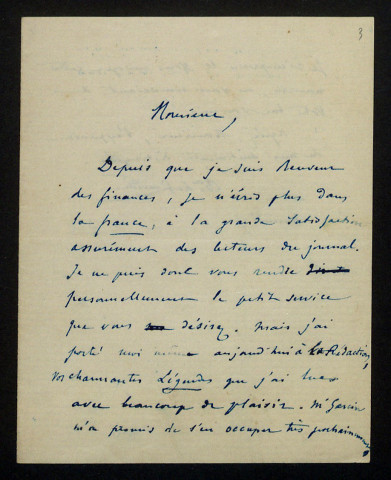 3
Monsieur,
Depuis que je suis Receveur
des finances, je n'écris plus dans
la france, à la grande satisfaction
assurément des lecteurs du journal.
Je ne puis dont vous rendre
personnellement le petit service
que vous désirez. Mais j'ai
porté moi même aujourd'hui à la Rédaction,
vos charmantes Légendes que j'ai lues
avec beaucoup de plaisir. Mr
m'a promis de s'en occuper très prochainement.